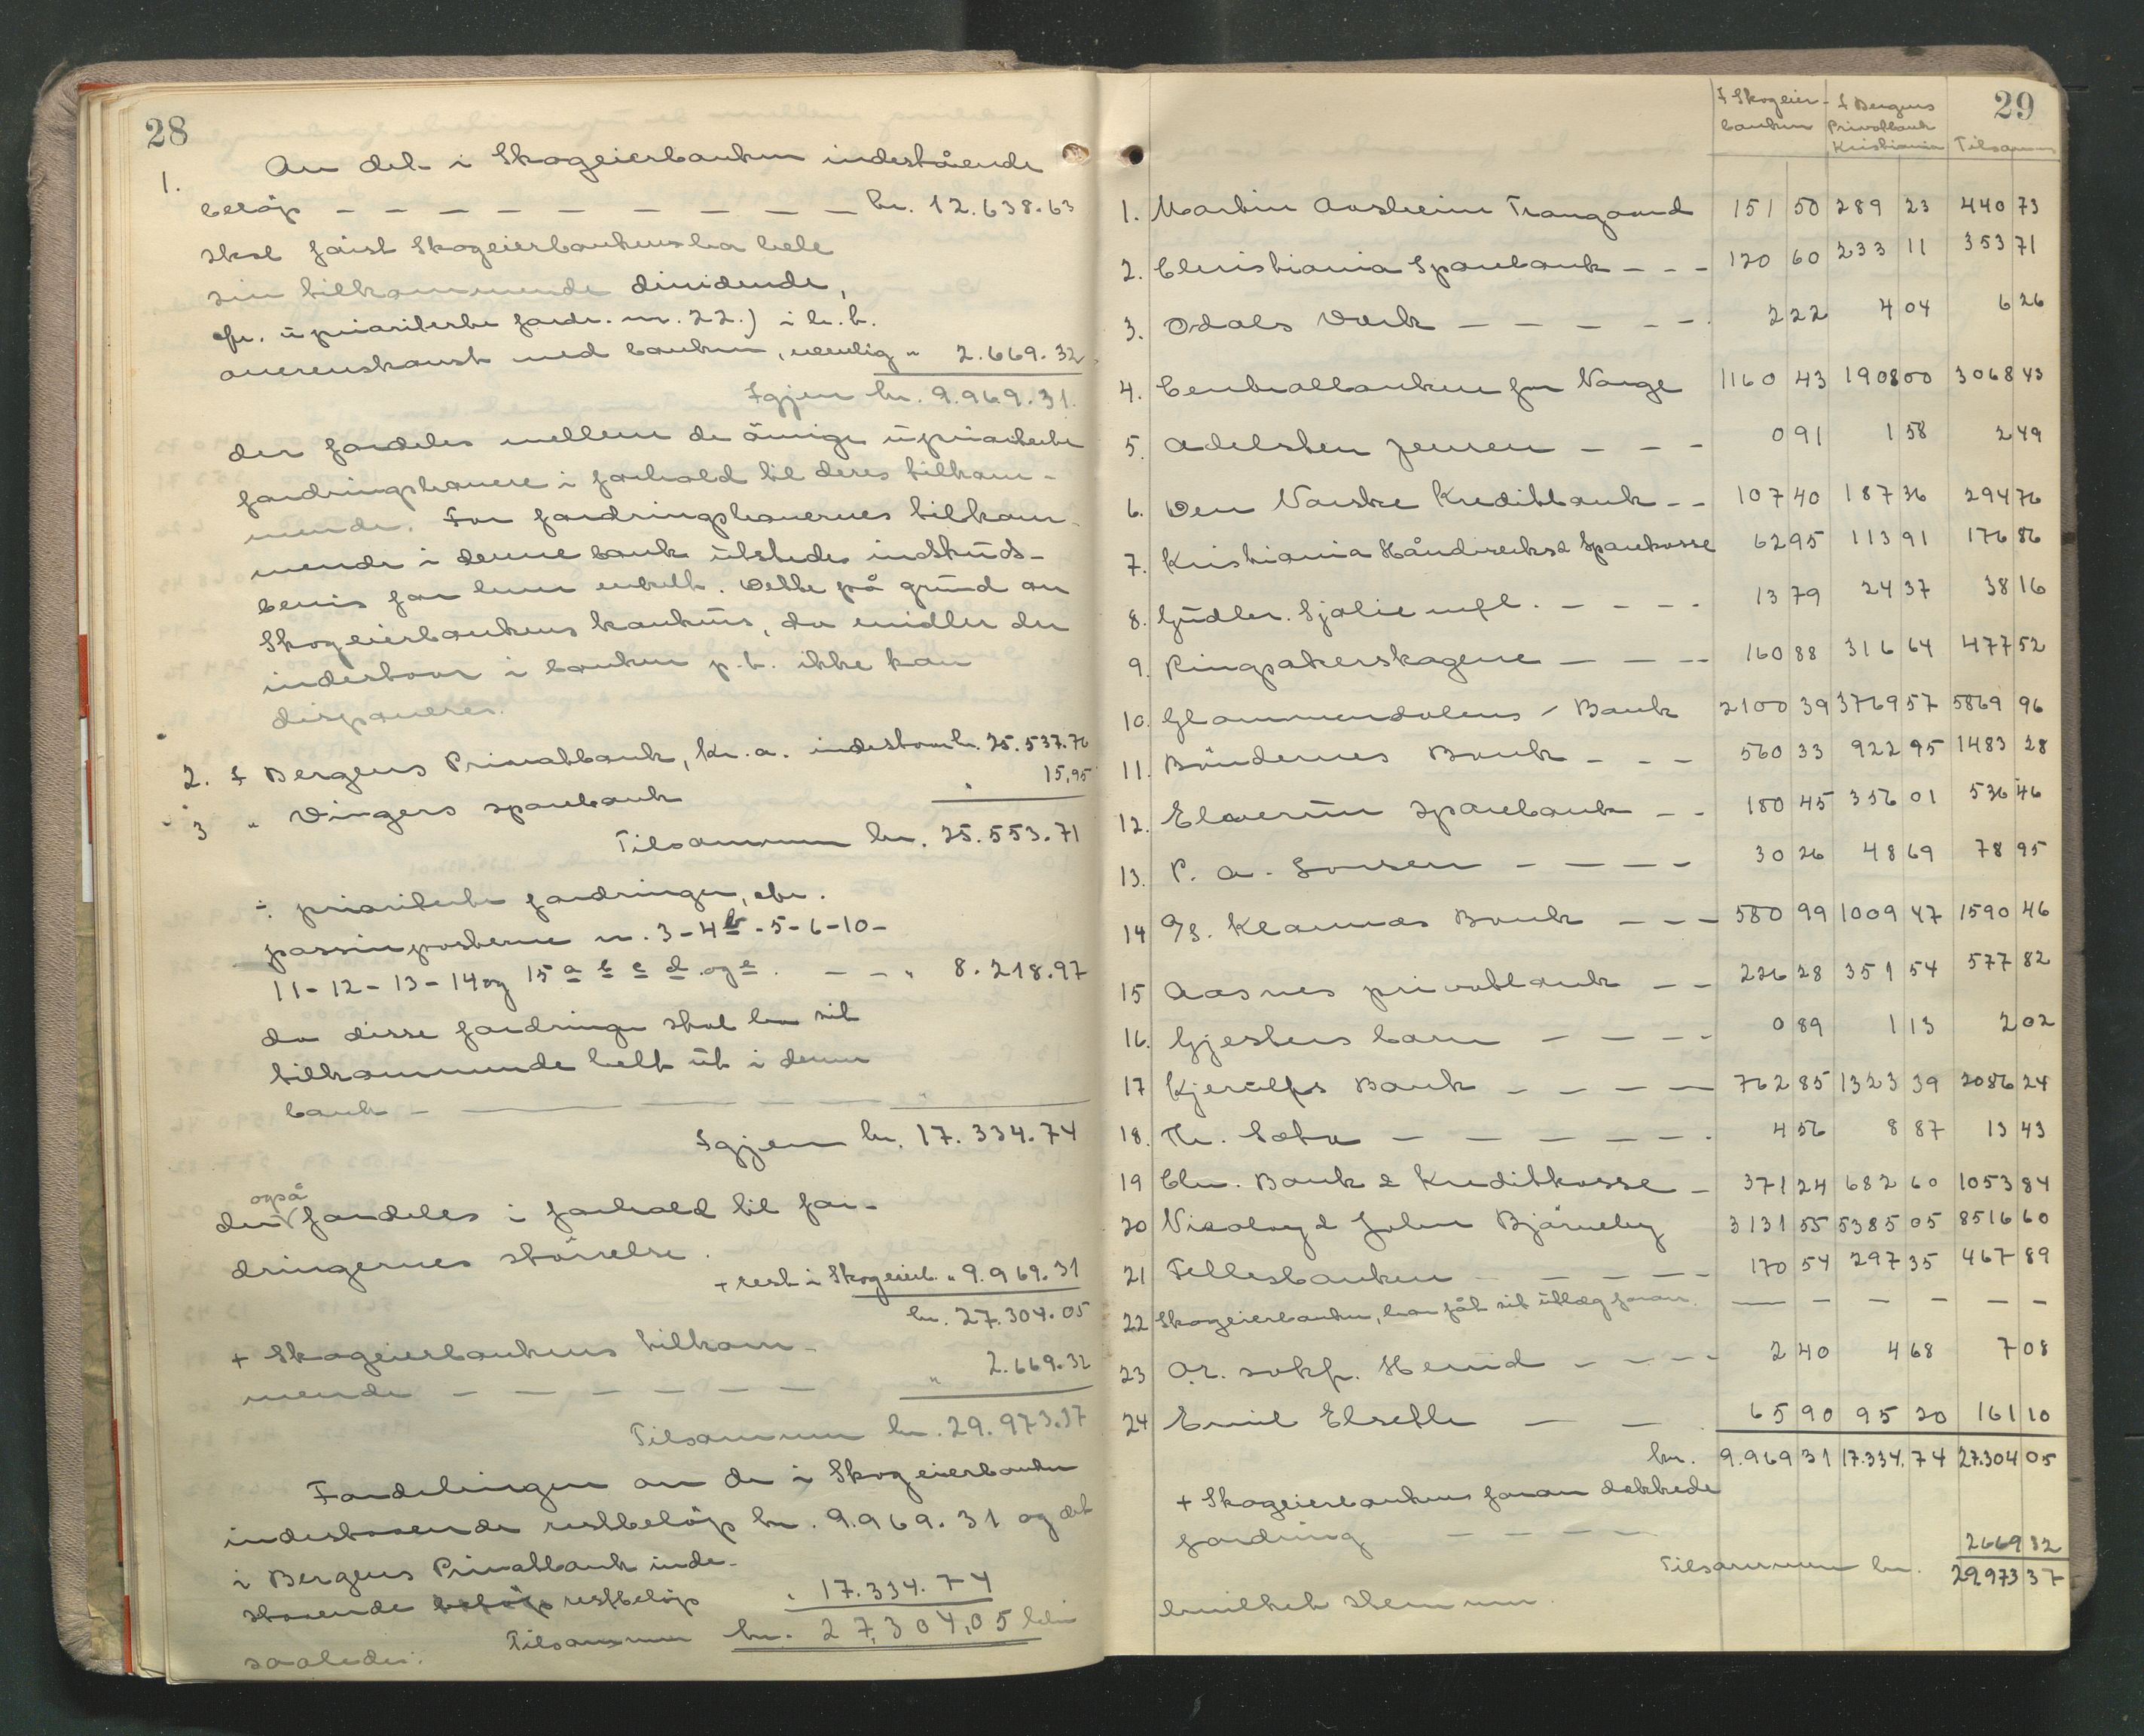 28
1. Av det i Skogeierbanken indestående
beløp — — — — — — — — — kr. 12.638.63
skal først Skogeierbanken ha hele
sin tilkommende dividende,
cfr. uprioriterte fordr. nr. 22.) i h.t.
overenskomst med banken, nemlig " 2.669.32
Igjen kr. 9.969.31.
der fordeles mellem de øvrige uprioriterte
fordringshavere i forhold til deres tilkom-
mende. For fordringshavernes tilkom-
mende i denne bank utstedes indskuds-
bevis for hver enkelt. Dette på grund av
Skogeierbankens konkurs, da midler der
indestaar i banken p.t. ikke kan
disponeres.
2. I Bergens Privatbank, Kr.a. indestaar kr. 25.537.76
3 " Vingers sparebank " 15,95
Tilsammen kr. 25.553.71
÷ prioriterte fordringer, cfr.
passivposterne nr. 3-4b-5-6-10-
11-12-13-14 og 15 a b c d og e. — — " 8.218.97
da disse fordringer skal ha sit
tilkommende helt ut i denne
bank — — — — — "
Igjen kr. 17.334.74
der også fordeles i forhold til for-
dringernes størrelse.
+ rest i Skogeierb. " 9.969.31
kr. 27.304.05
+ Skogeierbankens tilkom-
mende — — — — — — " 2.669.32
Tilsammen kr. 29.973.37
Fordelingen av de i Skogeierbanken
indestaaende restbeløp kr. 9.969.31 og det
i Bergens Privatbank inde-
staaende beløp restbeløp " 17.334.74
Tilsammen kr. 27,304,05 blir
saaledes:
29
I Skogeier- banken | I Bergens Privatbank Kristiania | Tilsammen
1. Martin Aasheim Trangaard 151 50 289 23 440 73
2. Christiania Sparebank — — — 120 60 233 11 353 71
3. Odals Verk — — — — — 2 22 4 04 6 26
4. Centralbanken for Norge 1160 43 1908 00 3068 43
5. Adelsten Jensen — — — 0 91 1 58 2 49
6. Den Norske Kreditbank — — 107 40 187 36 294 76
7. Kristiania Håndverks & Sparekasse 62 95 113 91 176 86
8. Gudbr. Sjølie mfl. — — — — 13 79 24 37 38 16
9. Ringsakerskogene — — — 160 88 316 64 477 52
10. Glommendalens Bank 2100 39 3769 57 5869 96
11. Bøndernes Bank — — — 560 33 922 95 1483 28
12. Elverum Sparebank — — 180 45 356 01 536 46
13. P. A. Larsen — — — — 30 26 48 69 78 95
14 A/S. Kløvnæs Bank — — — 580 99 1009 47 1590 46
15 Aasnes privatbank — — 226 28 351 54 577 82
16. Gjestens barn — — — — 0 89 1 13 2 02
17 Kjerulfs Bank — — — — 762 85 1323 39 2086 24
18. Th. Sætre — — — — — — 4 56 8 87 13 43
19 Chr. Bank & Kreditkasse — 371 24 682 60 1053 84
20 Nicolay & John Bjørneby 3131 55 5385 05 8516 60
21 Fellesbanken — — — — 170 54 297 35 467 89
22 Skogeierbanken, har fåt sit utlæg foran. — — — — — —
23 O.r. sakf. Hemid — — — — 2 40 4 68 7 08
24 Emil Elseth — — 65 90 95 20 161 10
kr. 9.969 31 17.334.74 27.304 05
+ Skogeierbankens foran dekkede
fordring — — — — 2669 32
Tilsammen kr. 29973 37
hvilket stemmer.